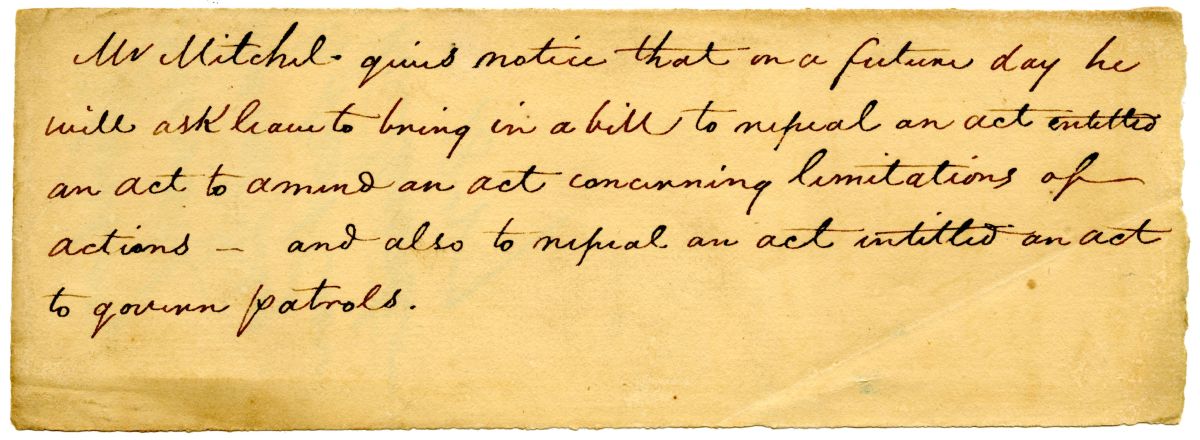 Mr Mitchel. gives notice that on a future day he
will ask leave to bring in a bill to repeal an act entitled
an act to amend an act concerning limitations of
actions – and also to repeal an act intitled an act
to govern patrols.